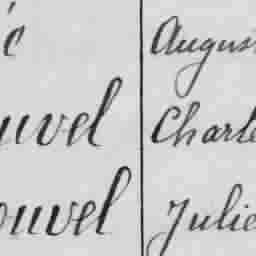 c August
uvel Charle
ouvel Julie